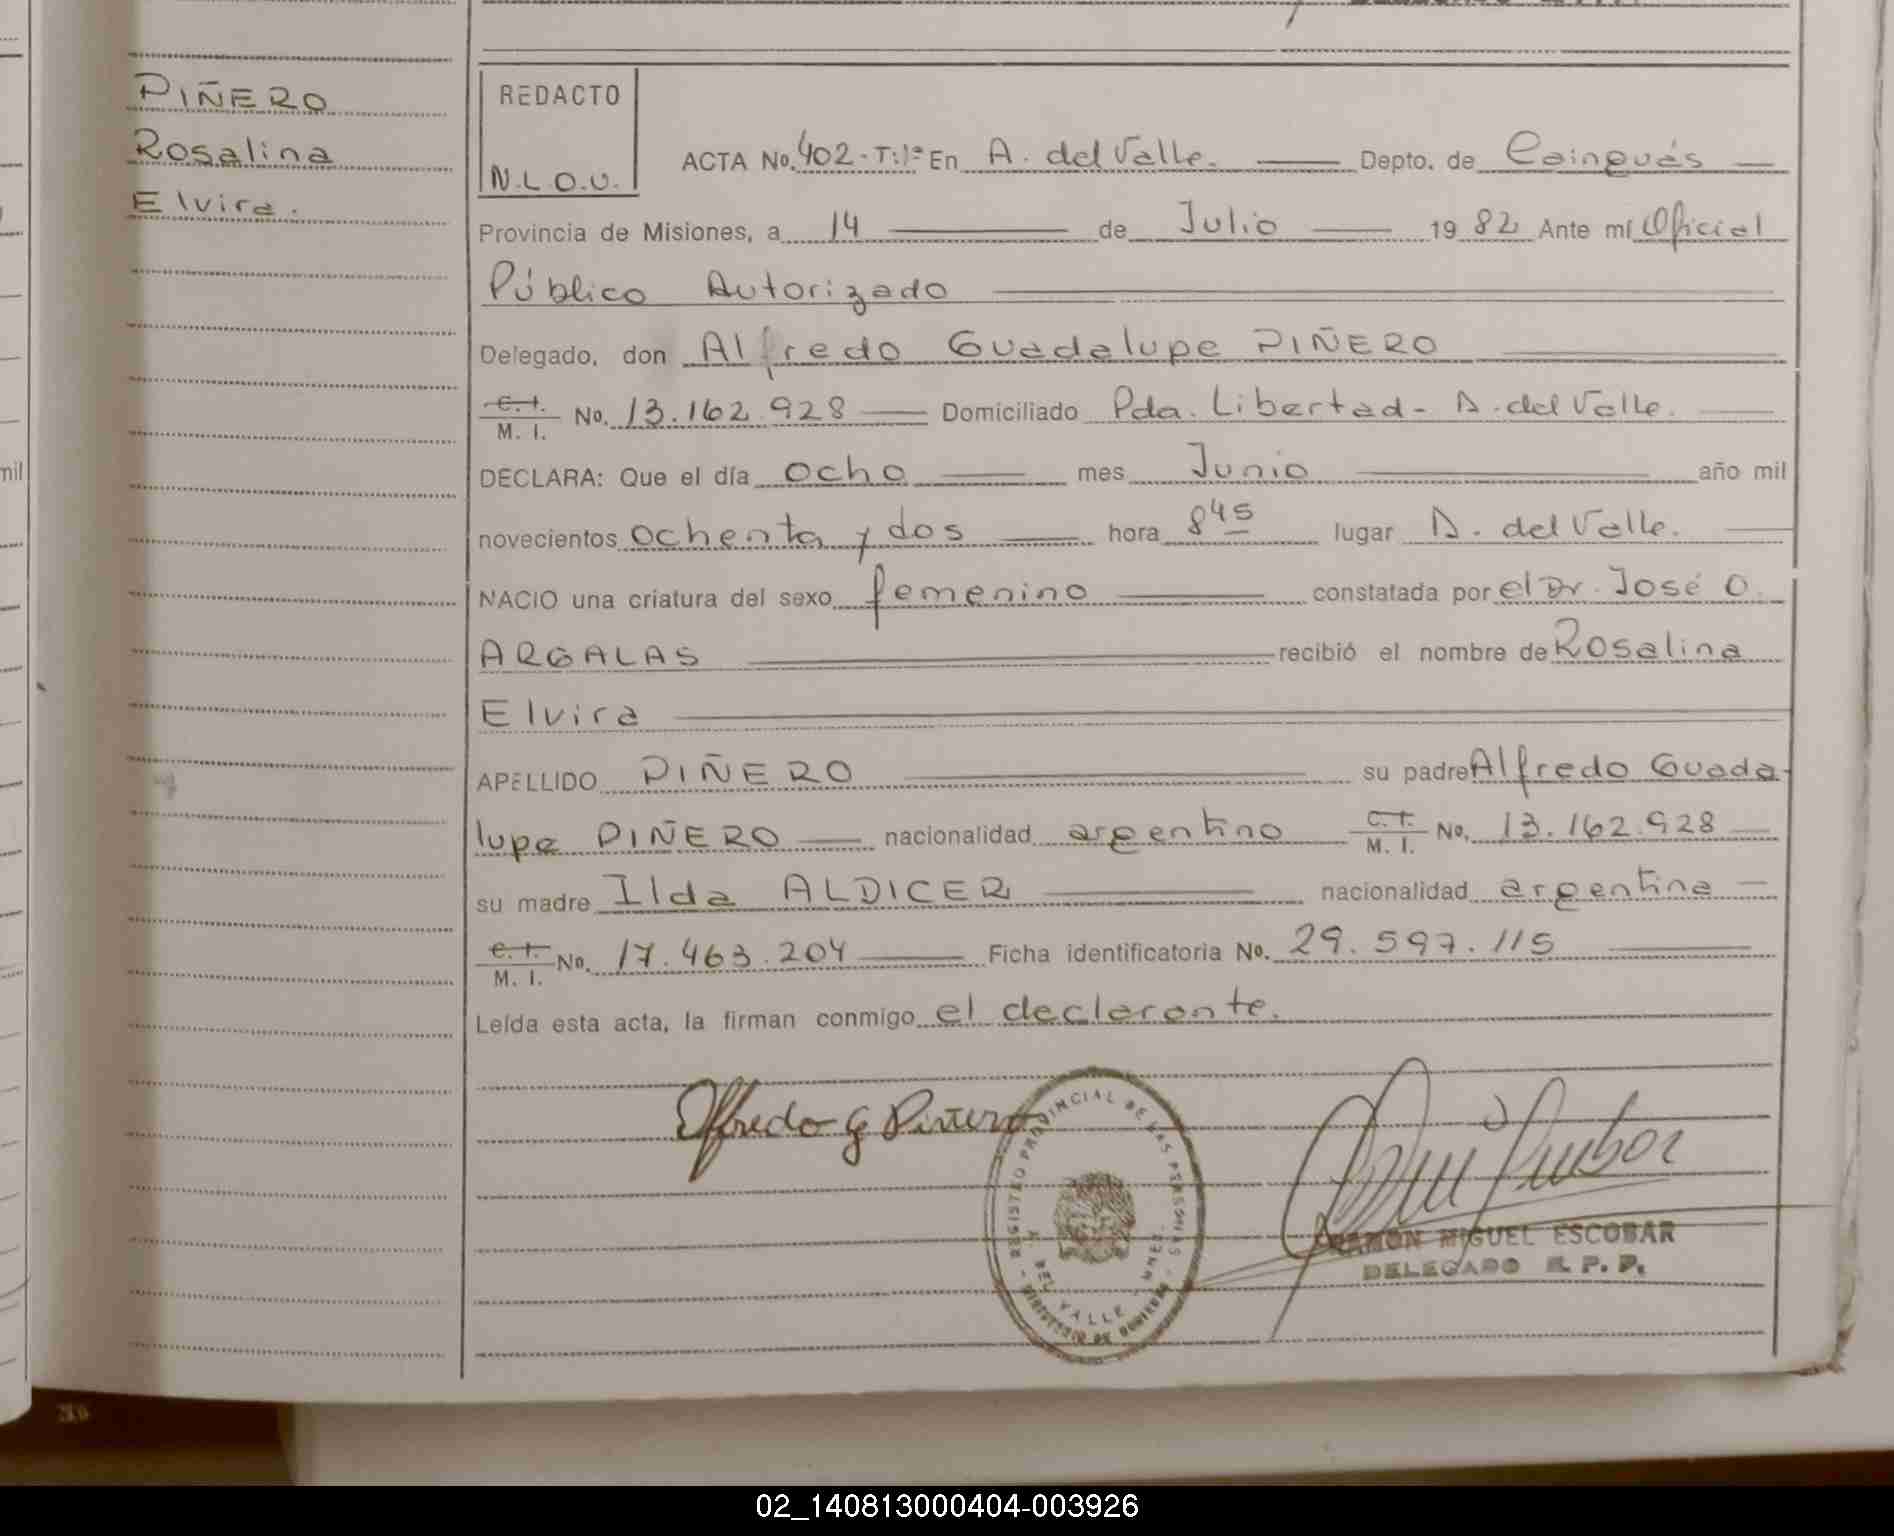 PIÑERO
Rosalina
Elvira.
REDACTO
N.L.O.U.
ACTA No. 402-T:1ª En A. del Valle. Depto. de Cainguás
Provincia de Misiones, a 14 de Julio 19 82 Ante mí Oficial
Público Autorizado
Delegado, don Alfredo Guadalupe PIÑERO
C.I.
M. I. No. 13.162.928 Domiciliado Pda. Libertad - A. del Valle.
DECLARA: Que el día ocho mes Junio año mil
novecientos ochenta y dos hora 8 45 lugar A. del Valle.
NACIO una criatura del sexo femenino constatada por el Dr. José O.
ARGALAS recibió el nombre de Rosalina
Elvira
APELLIDO PIÑERO su padre Alfredo Guada-
lupe PIÑERO nacionalidad argentino C.I. M. I. No. 13.162.928
su madre Ilda ALDICER nacionalidad argentina
C.I.
M. I. No. 17.463.204 Ficha identificatoria No. 29.597.115
Leída esta acta, la firman conmigo el declarante.
Alfredo G Piñero
REGISTRO PROVINCIAL DE LAS PERSONAS
A. DEL VALLE - MNES.
MINISTERIO DE GOBIERNO
RAMON MIGUEL ESCOBAR
DELEGADO R. P. P.
mil
02_140813000404-003926